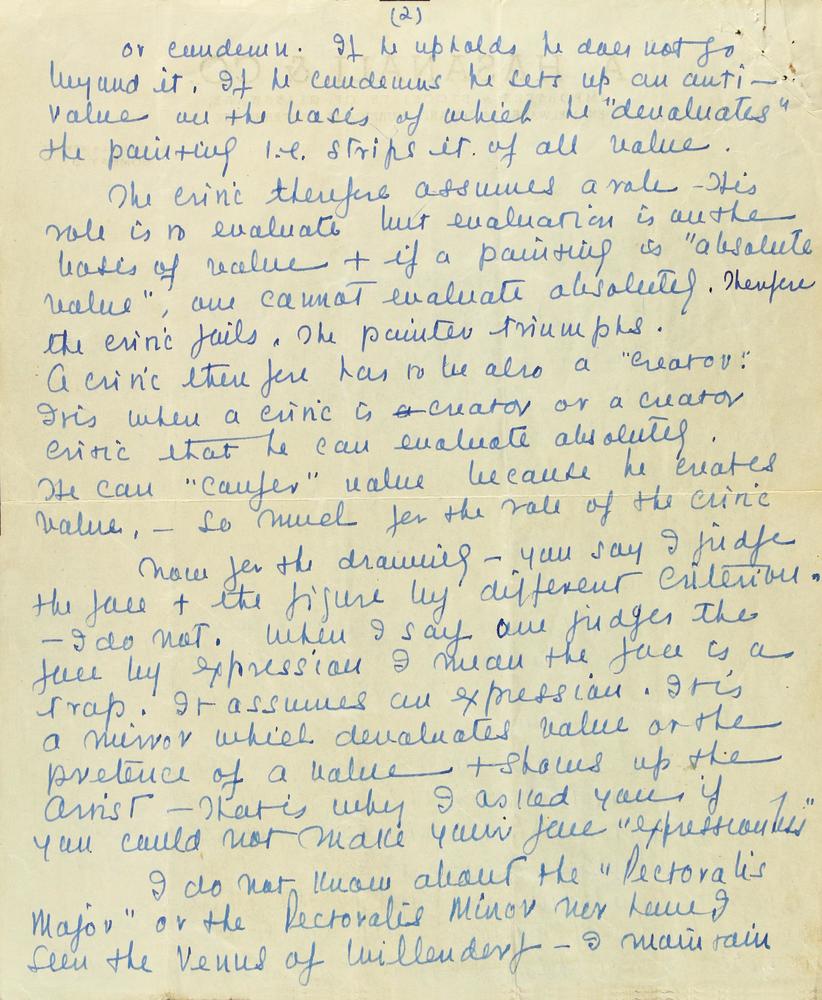 (2)
or condemn. If he upholds he does not go
beyond it. If he condemns he sets up an anti-
value on the basis of which he "devaluates"
the painting i.e. strips it of all value.
The critic therefore assumes a role - His
role is to evaluate but evaluation is on the
basis of value + if a painting is "absolute
value", one cannot evaluate absolutely. Therefore
the critic fails. The painter triumphs.
A critic therefore has to be also a "creator".
It is when a critic is a creator or a creator
critic that he can evaluate absolutely.
He can "confer" value because he creates
value. - So much for the role of the critic
Now for the drawing - you say I judge
the face + the figure by different criterion.
- I do not. When I say one judges the
face by expression I mean the face is a
trap. It assumes an expression. It is
a mirror which devaluates value or the
pretence of a value + shows up the
Artist - That is why I asked you if
you could not make your face "expressionless"
I do not know about the "Pectoralis
Major" or the Pectoralis Minor nor have I
seen the Venus of Willendorf - I maintain